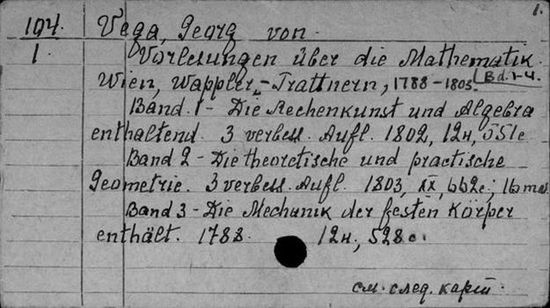 1.
104. Vega, Georg von
1. Vorlesungen über die Mathematik.
Wien, Wappler,-Trattnern, 1788-1805. Bd. 1-4.
Band. 1 - Die Rechenkunst und Algebra
enthaltend. 3 verbess. Aufl. 1802, 12н, 551с
Band 2 - Die theoretische und practische
Geometrie. 3 verbess. Aufl. 1803, XX, 662с.; 16
Band 3 - Die Mechanik der festen Körper
enthält. 1788. 12н, 528с.
см. след. карт